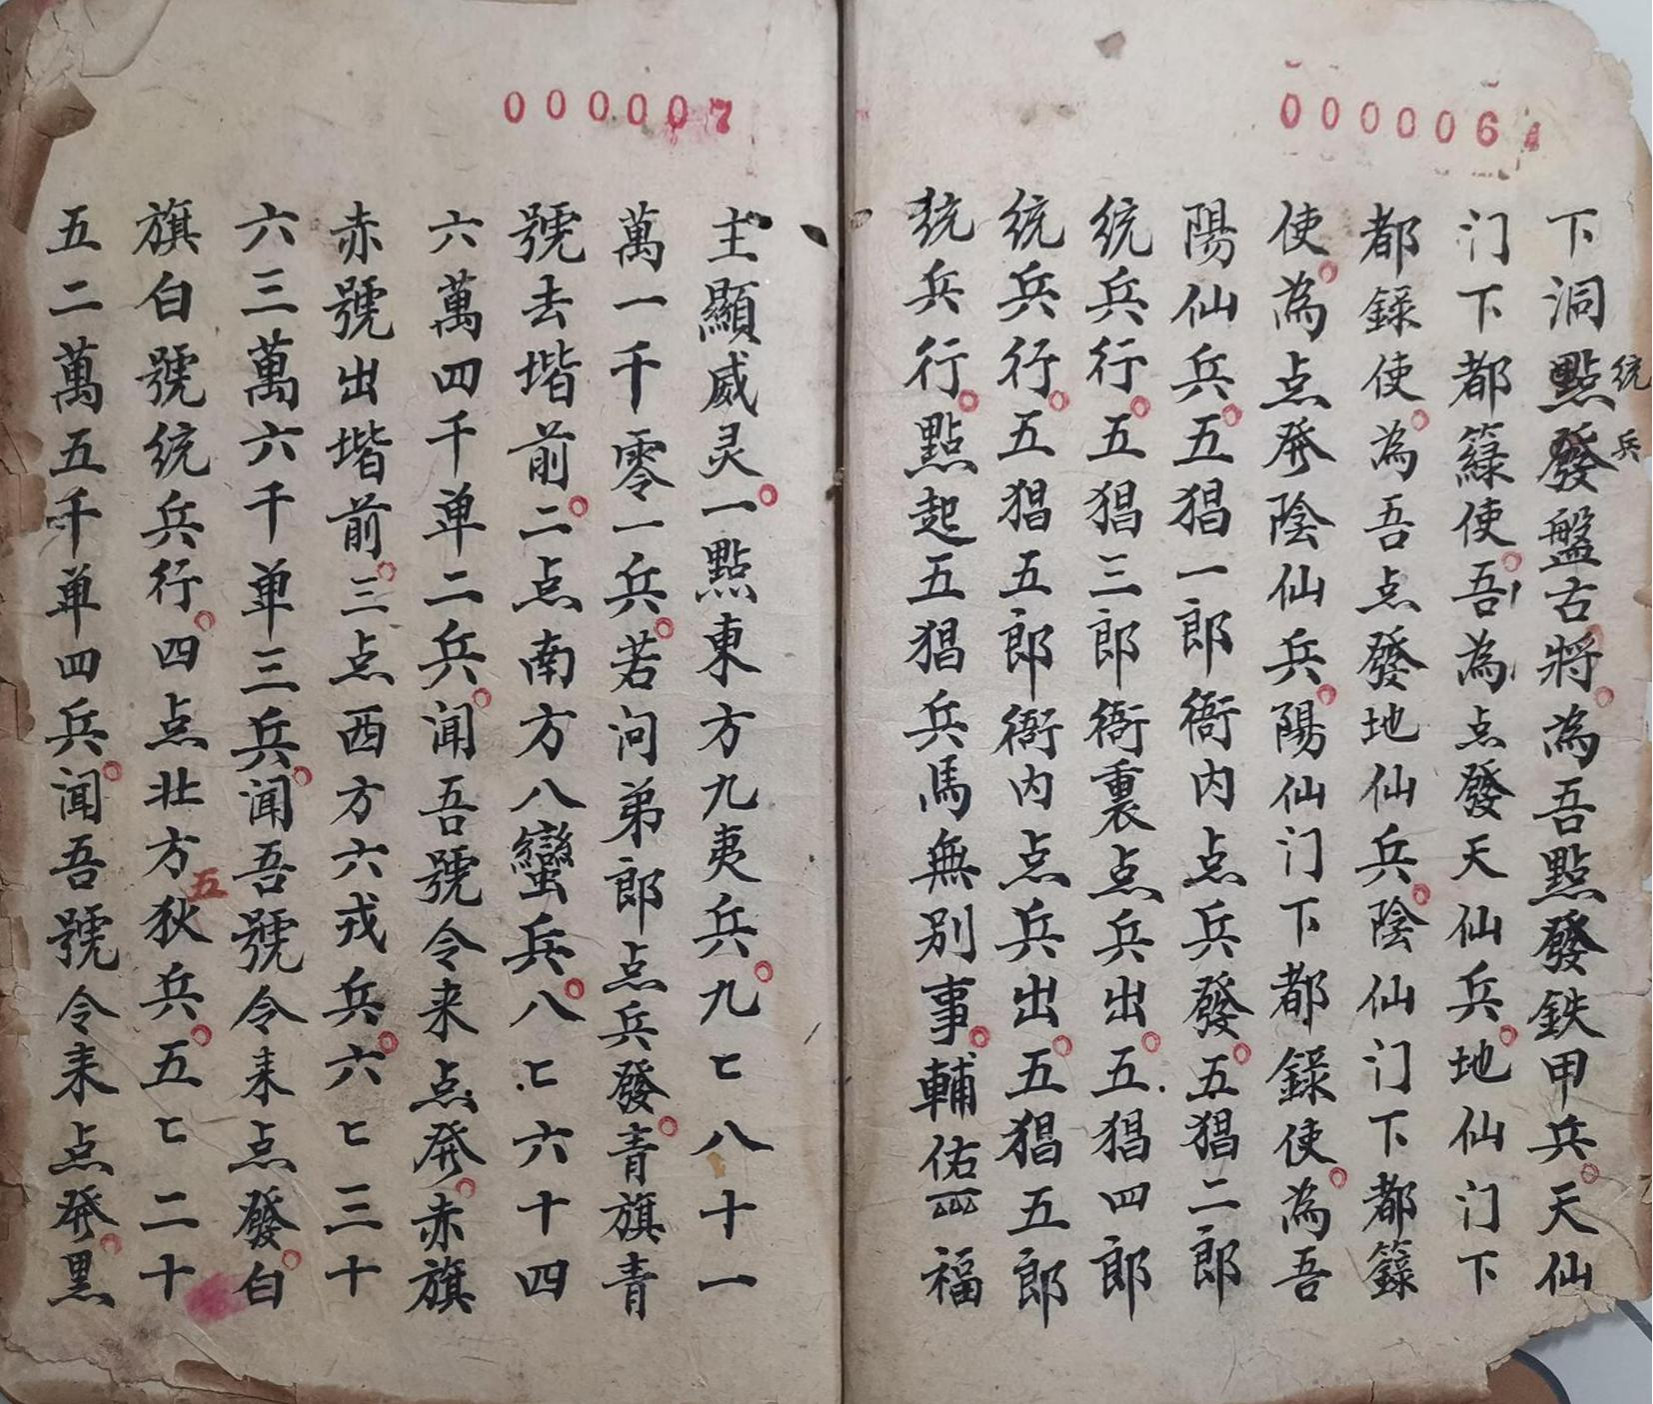 000006
下洞點發盤古將為吾點發鉄甲兵天仙
統兵
门下都籙使吾為点發天仙兵地仙门下
都録使為吾点發地仙兵陰仙门下都籙
使為点発陰仙兵陽仙门下都録使為吾
陽仙兵五猖一郎衙内点兵發五猖二郎
統兵行五猖三郎衙裏点兵出五猖四郎
統兵行五猖五郎衙内点兵出五猖五郎
統兵行點起五猖兵馬無別事輔佑福
000007
主顯威灵一點東方九夷兵九七八十一
萬一千零一兵若问弟郎点兵發青旗青
號去堦前二点南方八蠻兵八七六十四
六萬四千单二兵闻吾號令来点発赤旗
赤號出堦前三点西方六戎兵六七三十
六三萬六千单三兵闻吾號令来点發白
旗白號統兵行四点北方狄兵五七二十
五
五二萬五千单四兵闻吾號令来点発黑